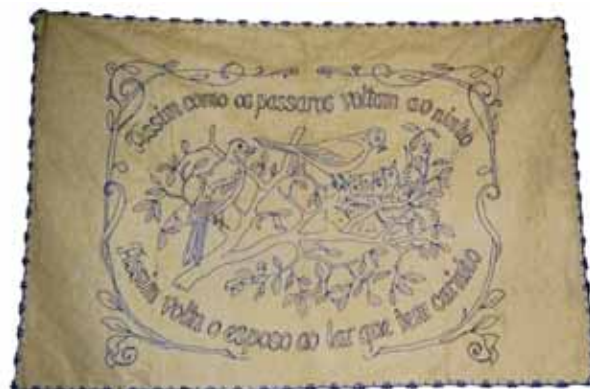 Assim como os passaros voltam ao ninho
Assim volta o esposo ao lar que tem carinho